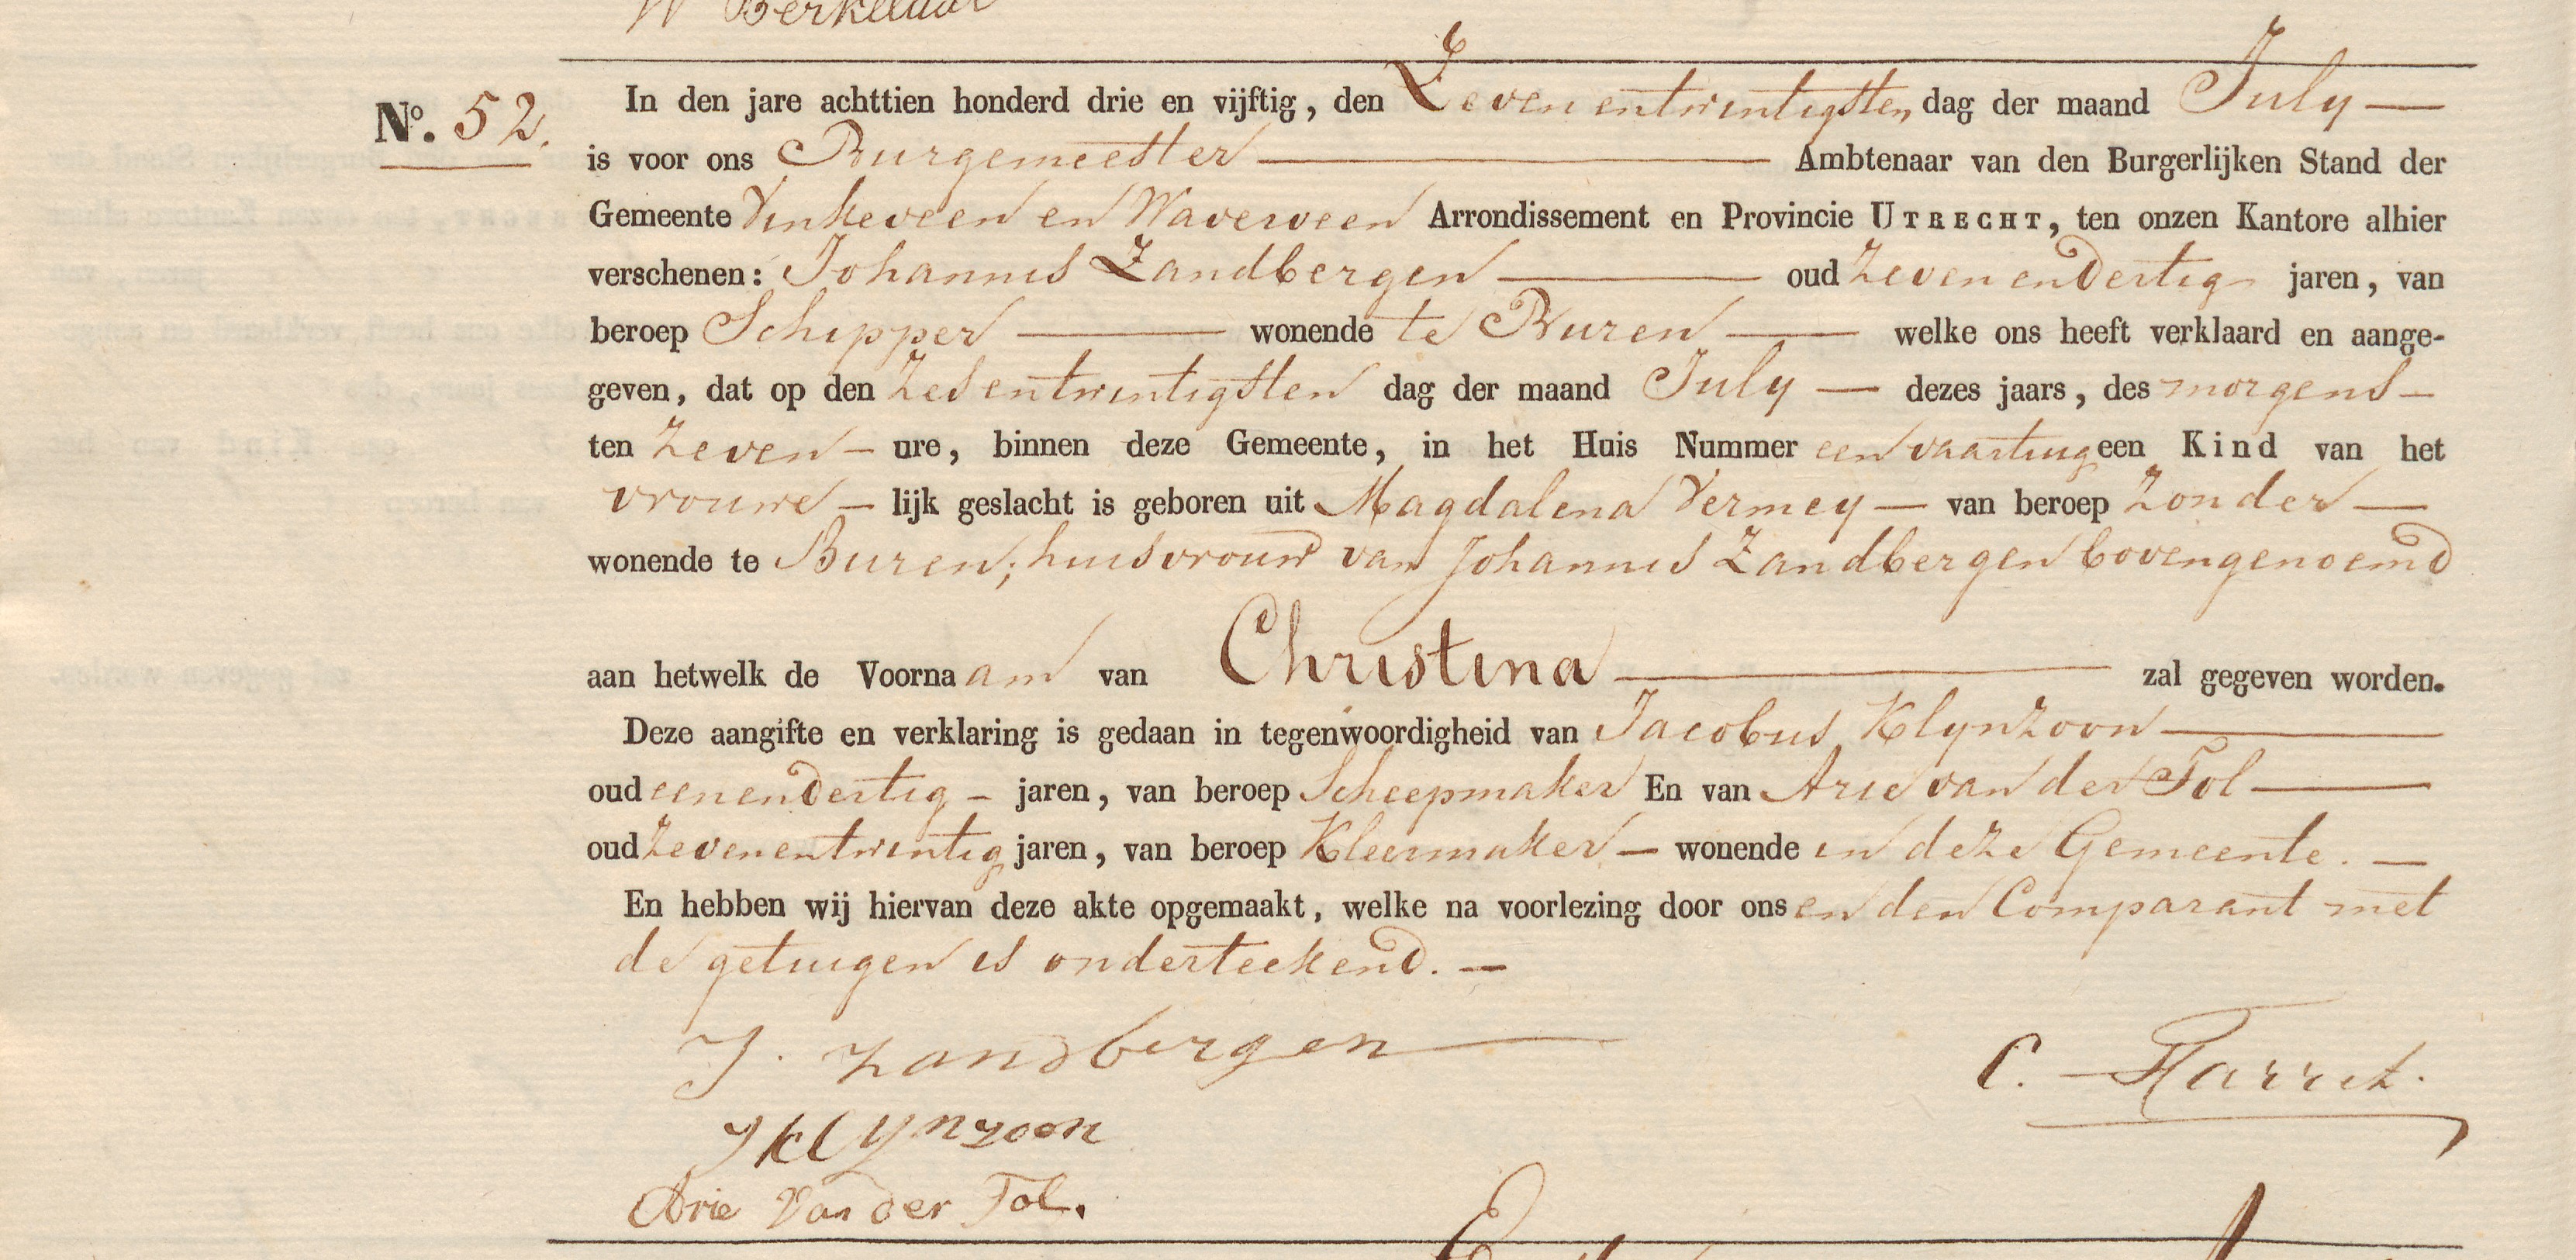 W Berkelaar
No. 52.
In den jare achttien honderd drie en vijftig, den Zevenentwintigsten dag der maand July —
is voor ons Burgemeester — Ambtenaar van den Burgerlijken Stand der
Gemeente Vinkeveen en Waverveen Arrondissement en Provincie UTRECHT, ten onzen Kantore alhier
verschenen: Johannis Zandbergen — oud Zevenendertig jaren, van
beroep Schipper — wonende te Buren — welke ons heeft verklaard en aange-
geven, dat op den Zesentwintigsten dag der maand July — dezes jaars, des morgens —
ten Zeven — ure, binnen deze Gemeente, in het Huis Nummer een vaartuig een Kind van het
vrouwe — lijk geslacht is geboren uit Magdalena Vermey — van beroep Zonder —
wonende te Buren; huisvrouw van Johannis Zandbergen bovengenoemd
aan hetwelk de Voornaam van Christina — zal gegeven worden.
Deze aangifte en verklaring is gedaan in tegenwoordigheid van Jacobus Klynzoon —
oud eenendertig — jaren, van beroep Scheepmaker En van Arie van der Tol —
oud Zevenentwintig jaren, van beroep Kleermaker — wonende in deze Gemeente. —
En hebben wij hiervan deze akte opgemaakt, welke na voorlezing door ons en den Comparant met
de getuigen is onderteekend. —
J. Zandbergen
C. Harret.
J Klynzoon
Arie Van der Tol.